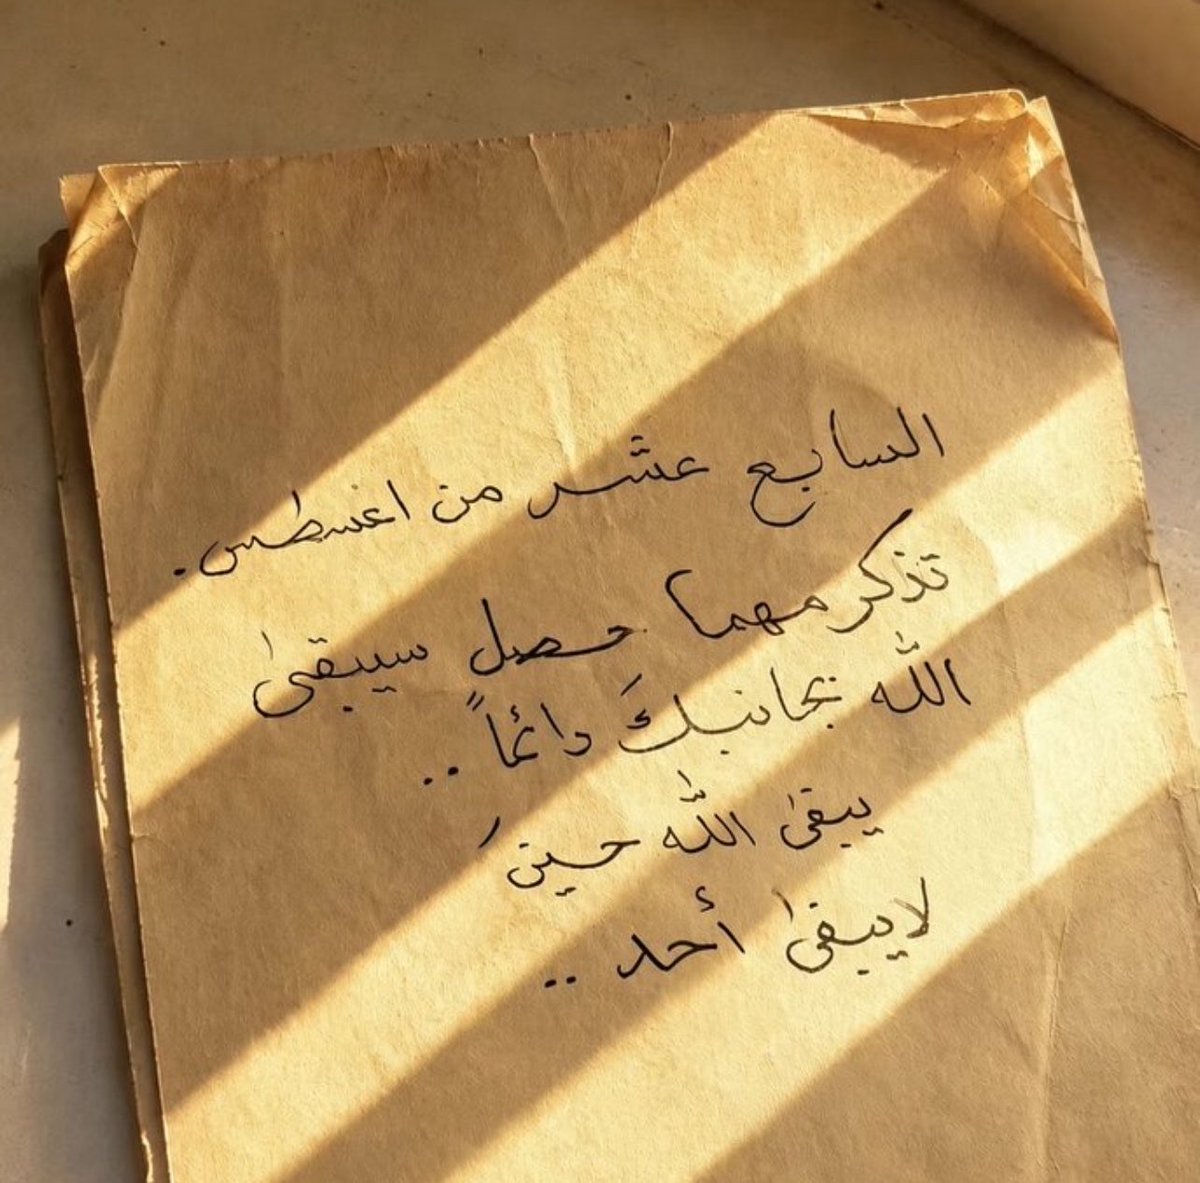 السابع عشر من اغسطس.
تذكر مهما حصل سيبقىٰ
اللّٰه بجانبكَ دائماً ..
يبقىٰ اللّٰه حينَ
لا يبقىٰ أحد ..